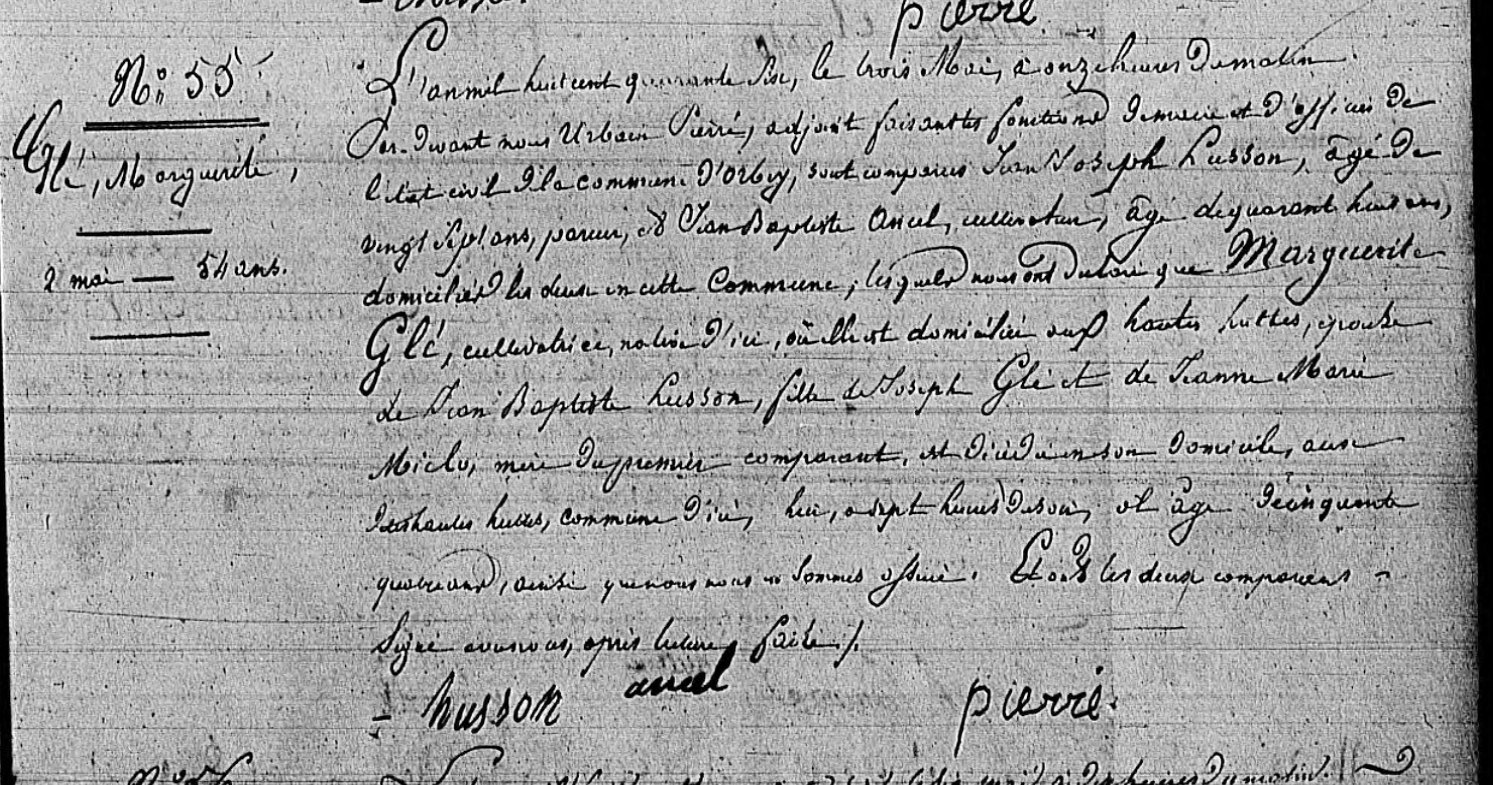 pierré
N.° 55
Glé, Marguerite,
2 mai — 54 ans.
L'an mil huit cent quarante six, le trois Mai, à onze heures du matin.
Par-devant nous Urbain Pierré, adjoint faisant les fonctions de maire et d'officier de
l'état civil de la commune d'Orbey, sont comparus Jean Joseph husson, âgé de
vingt sept ans, et Jean Baptiste Ancel, cultivateur, âgé de quarante huit ans,
domiciliés les deux en cette Commune, lesquels nous ont déclaré que Marguerite
Glé, cultivatrice, native d'ici, où elle est domiciliée aux hautes huttes, épouse
de Jean Baptiste husson, fille de Joseph Glé et de Jeanne Marie
Miclo, mère du premier comparant, est décédée en son domicile, aux
hautes huttes, commune d'ici, hier, à sept heures du soir, et âgée de cinquante
quatre ans, ainsi que nous nous en sommes assuré. Et ont les deux comparens
signé avec nous, après lecture faite ./.
- husson ancel pierré.
N.° 56
heures du matin.